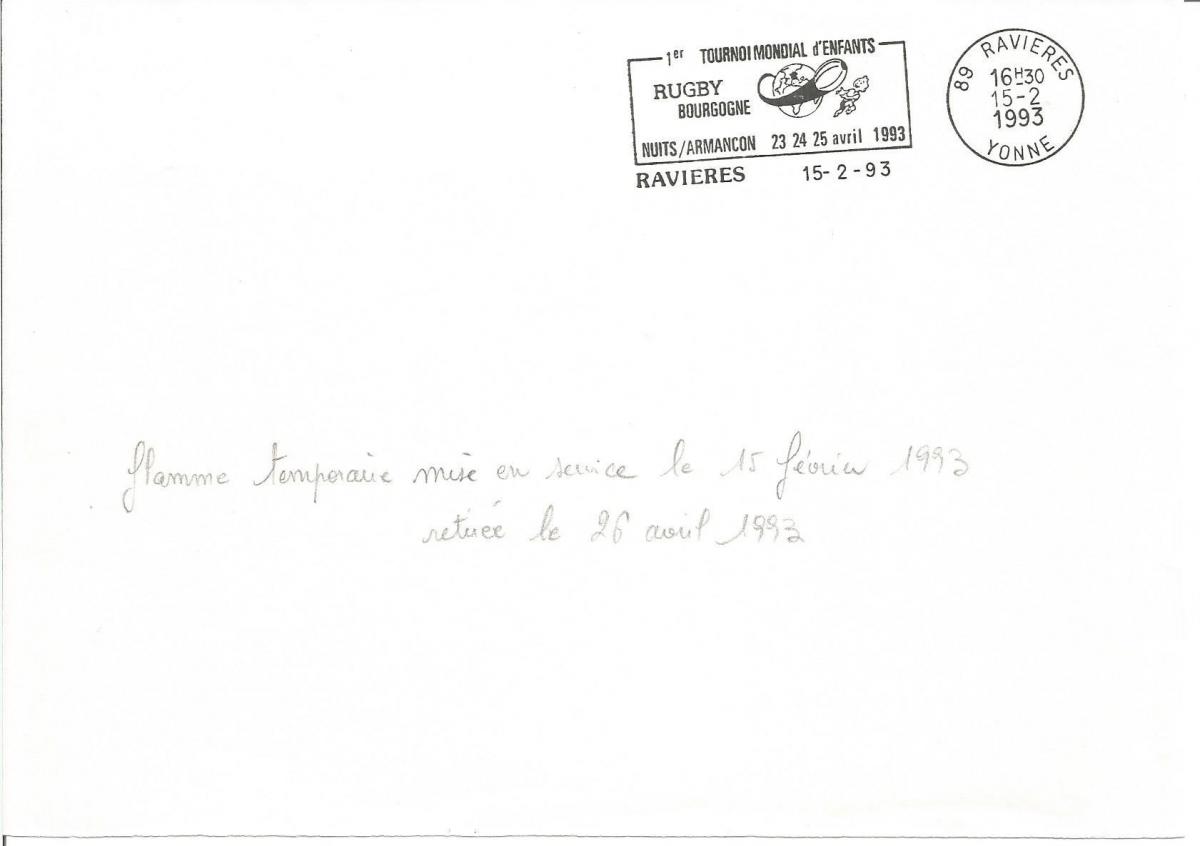 1er TOURNOI MONDIAL d'ENFANTS
RUGBY
BOURGOGNE
NUITS/ARMANCON 23 24 25 avril 1993
RAVIERES 15-2-93
89 RAVIERES
16H30
15-2
1993
YONNE
flamme temporaire mise en service le 15 février 1993
retirée le 26 avril 1993